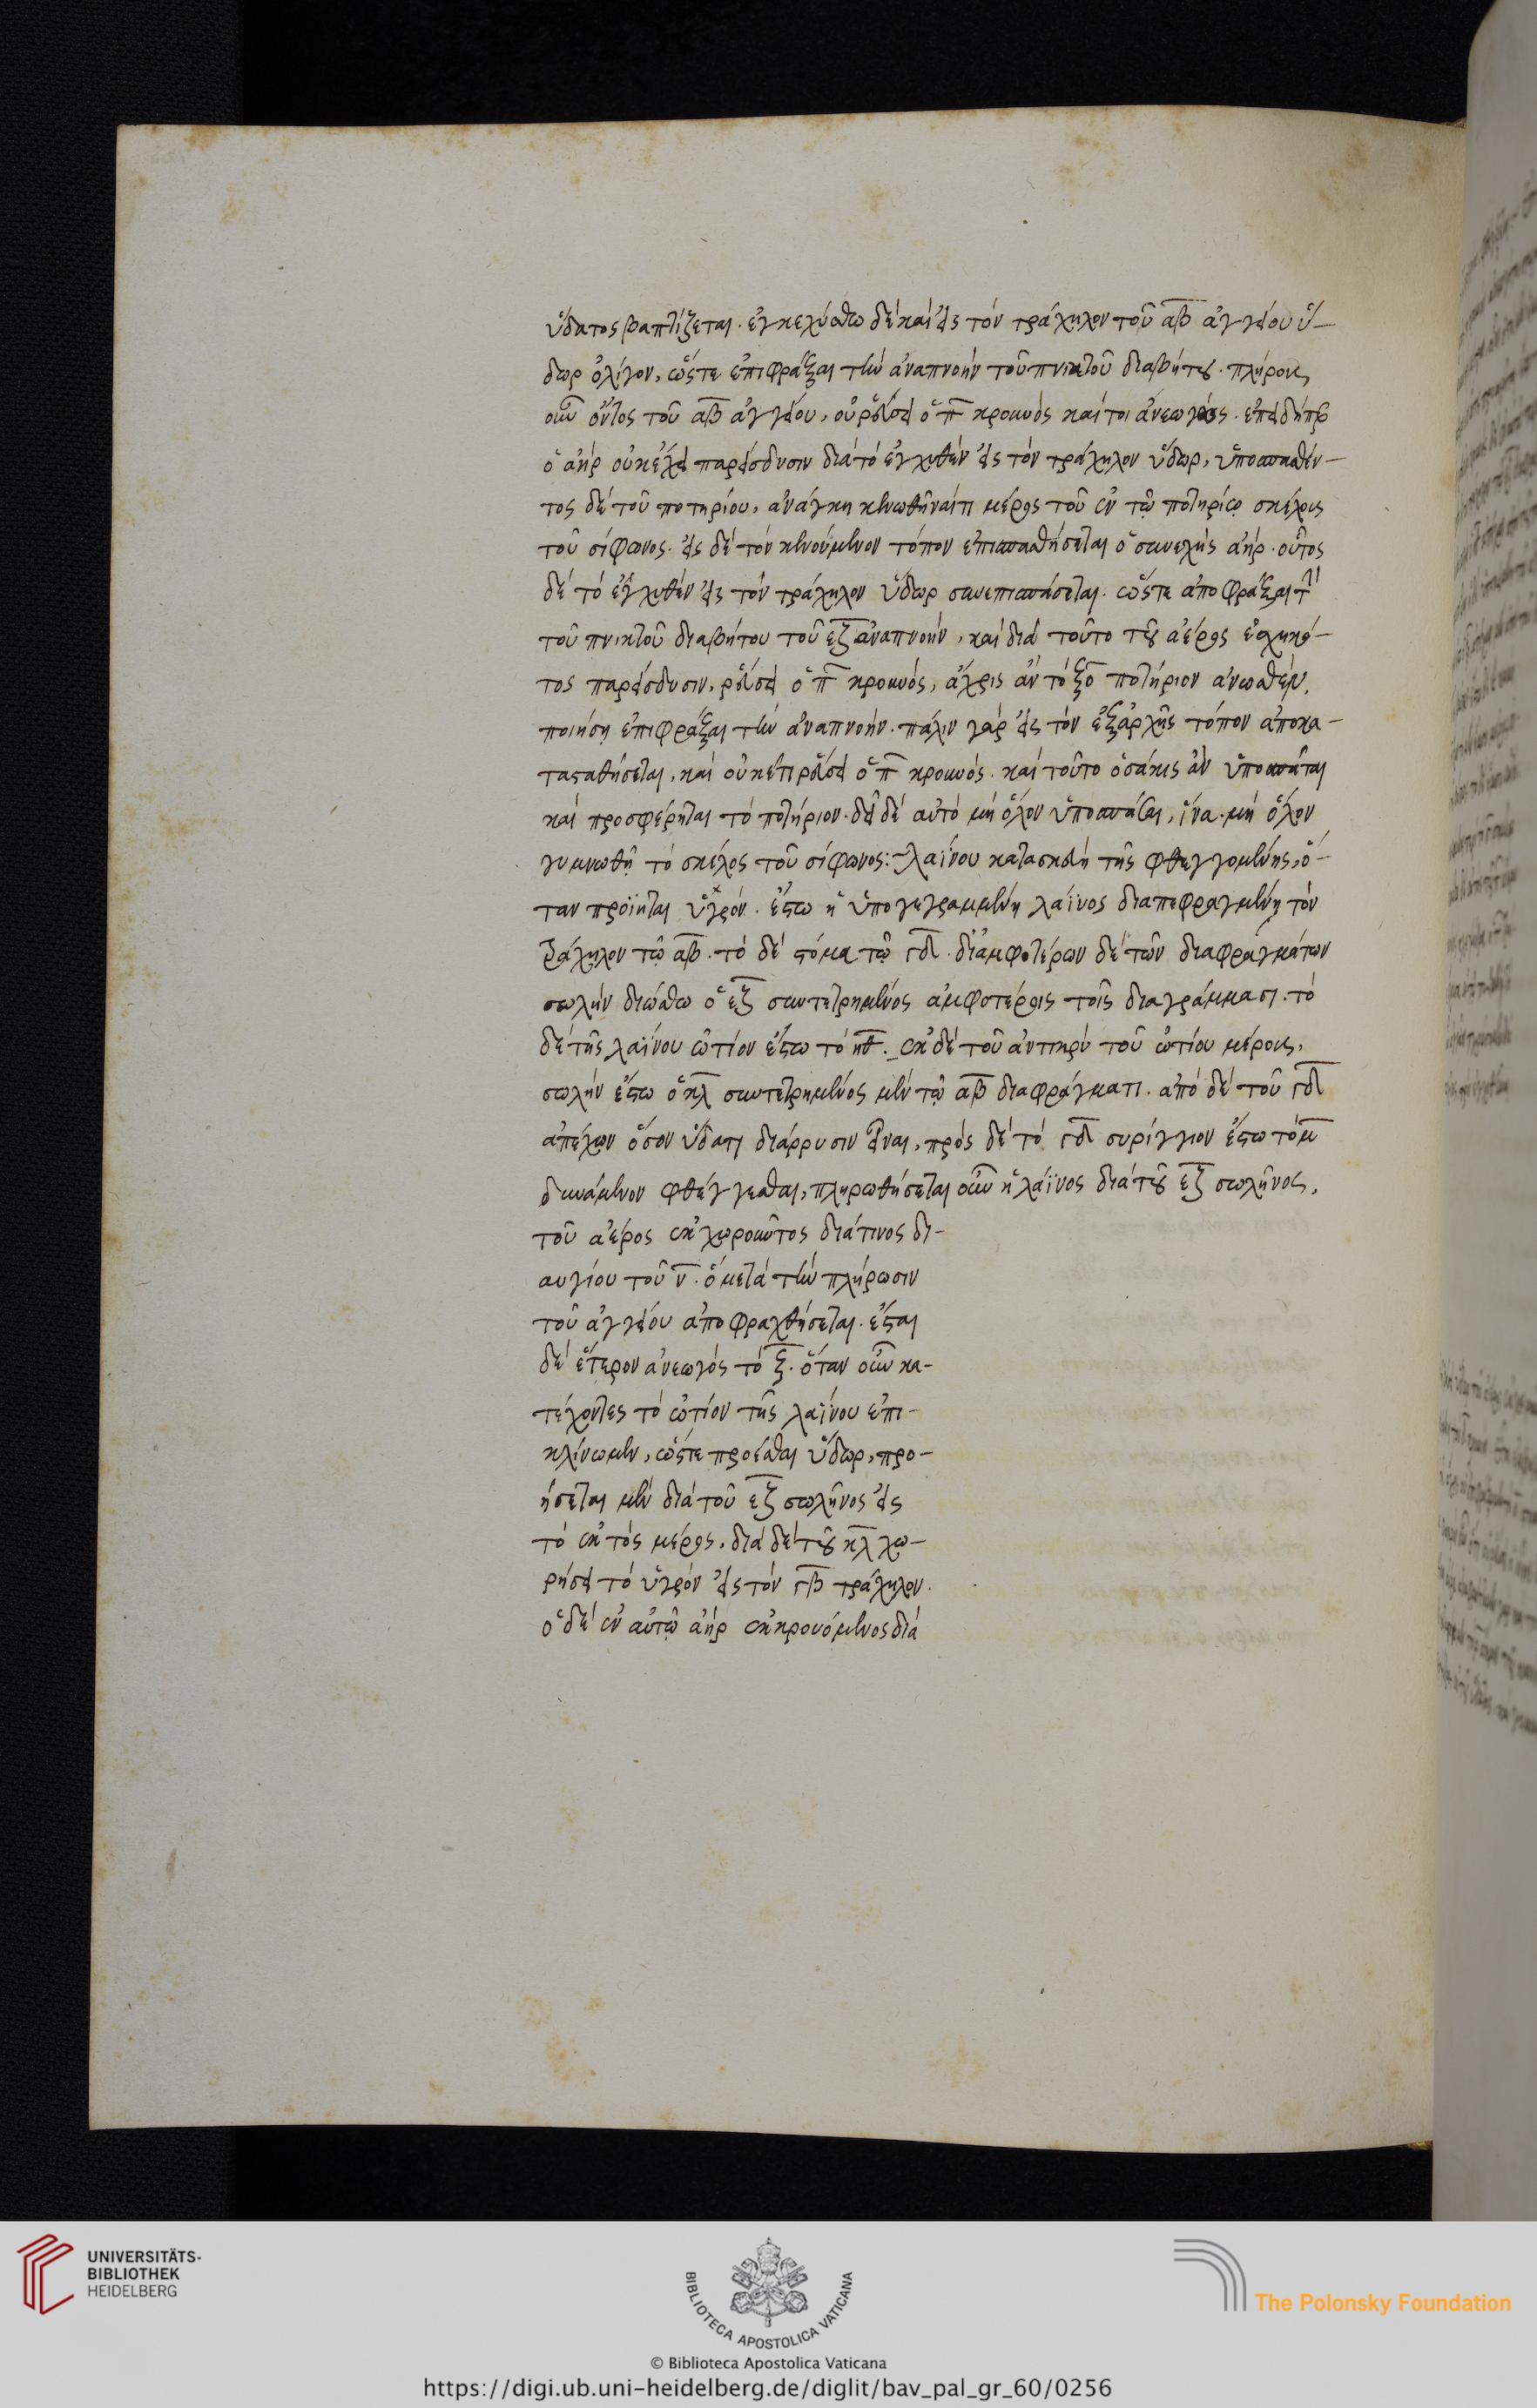 ὕδατος βαπτίζεται. ἐγκεχύσθω δὲ καὶ εἰς τὸν τράχηλον τοῦ αβ ἀγγείου ὕ-
δωρ ὀλίγον, ὥστε ἐπιφράξαι τὴν ἀναπνοὴν τοῦ πνικτοῦ διαβήτου. πλήρους
οὖν ὄντος τοῦ αβ ἀγγείου, οὐ ῥεύσει ὁ π κρουνὸς καίτοι ἀνεωγὼς. ἐπειδήπερ
ὁ ἀὴρ οὐκ ἔχει παρείσδυσιν διὰ τὸ ἐγχυθὲν εἰς τὸν τράχηλον ὕδωρ, ὑποσπασθέν-
τος δὲ τοῦ ποτηρίου, ἀνάγκη κενωθῆναί τι μέρος τοῦ ἐν τῷ ποτηρίῳ σκέλους
τοῦ σίφωνος. εἰς δὲ τὸν κενούμενον τόπον ἐπισπασθήσεται ὁ συνεχὴς ἀήρ. οὗτος
δὲ τὸ ἐγχυθὲν εἰς τὸν τράχηλον ὕδωρ συνεπισπάσεται. ὥστε ἀποφράξαι τὴν
τοῦ πνικτοῦ διαβήτου τοῦ εζ ἀναπνοήν, καὶ διὰ τοῦτο τοῦ ἀέρος ἐσχηκό-
τος παρείσδυσιν, ῥεύσει ὁ π κρουνός, ἄχρις ἂν τὸ ξο ποτήριον ἀνωσθὲν
ποιήσῃ ἐπιφράξαι τὴν ἀναπνοήν. πάλιν γὰρ εἰς τὸν ἐξ ἀρχῆς τόπον ἀποκα-
τασταθήσεται, καὶ οὐκέτι ῥεύσει ὁ π κρουνός. καὶ τοῦτο ὁσάκις ἂν ὑποσπᾶται
καὶ προσφέρηται τὸ ποτήριον. δεῖ δὲ αὐτὸ μὴ ὅλον ὑποσπᾶσθαι, ἵνα μὴ ὅλον
γυμνωθῇ τὸ σκέλος τοῦ σίφωνος:- λαΐνου κατασκευὴ τῆς φθεγγομένης, ὅ-
ταν προΐηται ὑγρόν. ἔστω ἡ ὑπογεγραμμένη λάϊνος διαπεφραγμένη τὸν
τράχηλον τῷ αβ. τὸ δὲ στόμα τῷ γδ. δι ἀμφοτέρων δὲ τῶν διαφραγμάτων
σωλὴν διώσθω ὁ εζ συντετρημένος ἀμφοτέροις τοῖς διαγράμμασι. τὸ
δὲ τῆς λαΐνου ὠτίον ἔστω τὸ ηθ. ἐκ δὲ τοῦ ἀντικρὺ τοῦ ὠτίου μέρους,
σωλὴν ἔστω ὁ κλ συντετρημένος μὲν τῷ αβ διαφράγματι. ἀπὸ δὲ τοῦ γδ
ἀπέχων ὅσον ὕδατι διάρρυσιν εἶναι, πρὸς δὲ τὸ γδ συρίγγιον ἔστω τὸ μ
δυνάμενον φθέγγεσθαι, πληρωθήσεται οὖν ἡ λάϊνος διὰ τοῦ εζ σωλῆνος,
τοῦ ἀέρος ἐκχωροῦντος διά τινος δι-
αυγίου τοῦ ν. ὃ μετὰ τὴν πλήρωσιν
τοῦ ἀγγείου ἀποφραχθήσεται. ἔσται
δὲ ἕτερον ἀνεωγὸς τὸ ξ. ὅταν οὖν κα-
τέχοντες τὸ ὠτίον τῆς λαΐνου ἐπι-
κλίνωμεν, ὥστε προέσθαι ὕδωρ, προ-
ήσεται μὲν διὰ τοῦ εζ σωλῆνος εἰς
τὸ ἐκτὸς μέρος, διὰ δὲ τοῦ κλ χω-
ρήσει τὸ ὑγρὸν εἰς τὸν γβ τράχηλον.
ὁ δὲ ἐν αὐτῷ ἀὴρ ἐκκρουόμενος διὰ
UNIVERSITÄTS-
BIBLIOTHEK
HEIDELBERG
BIBLIOTECA APOSTOLICA VATICANA
The Polonsky Foundation
© Biblioteca Apostolica Vaticana
https://digi.ub.uni-heidelberg.de/diglit/bav_pal_gr_60/0256